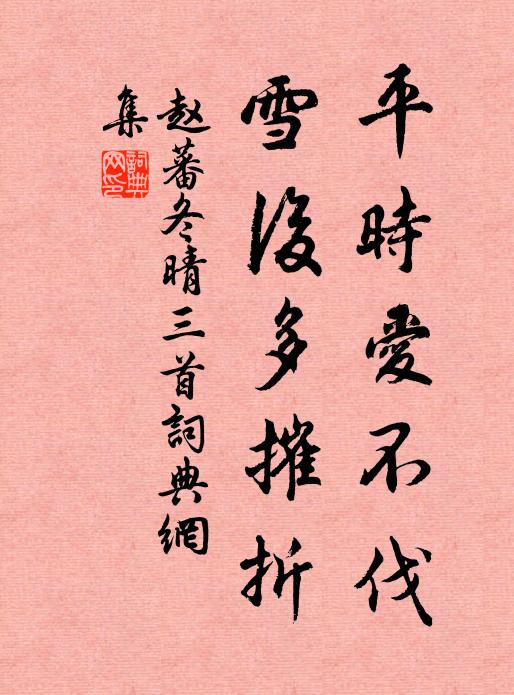 平時愛不伐
雪後多摧折
赵蕃冬晴三首詞典網
集
詞典
网印